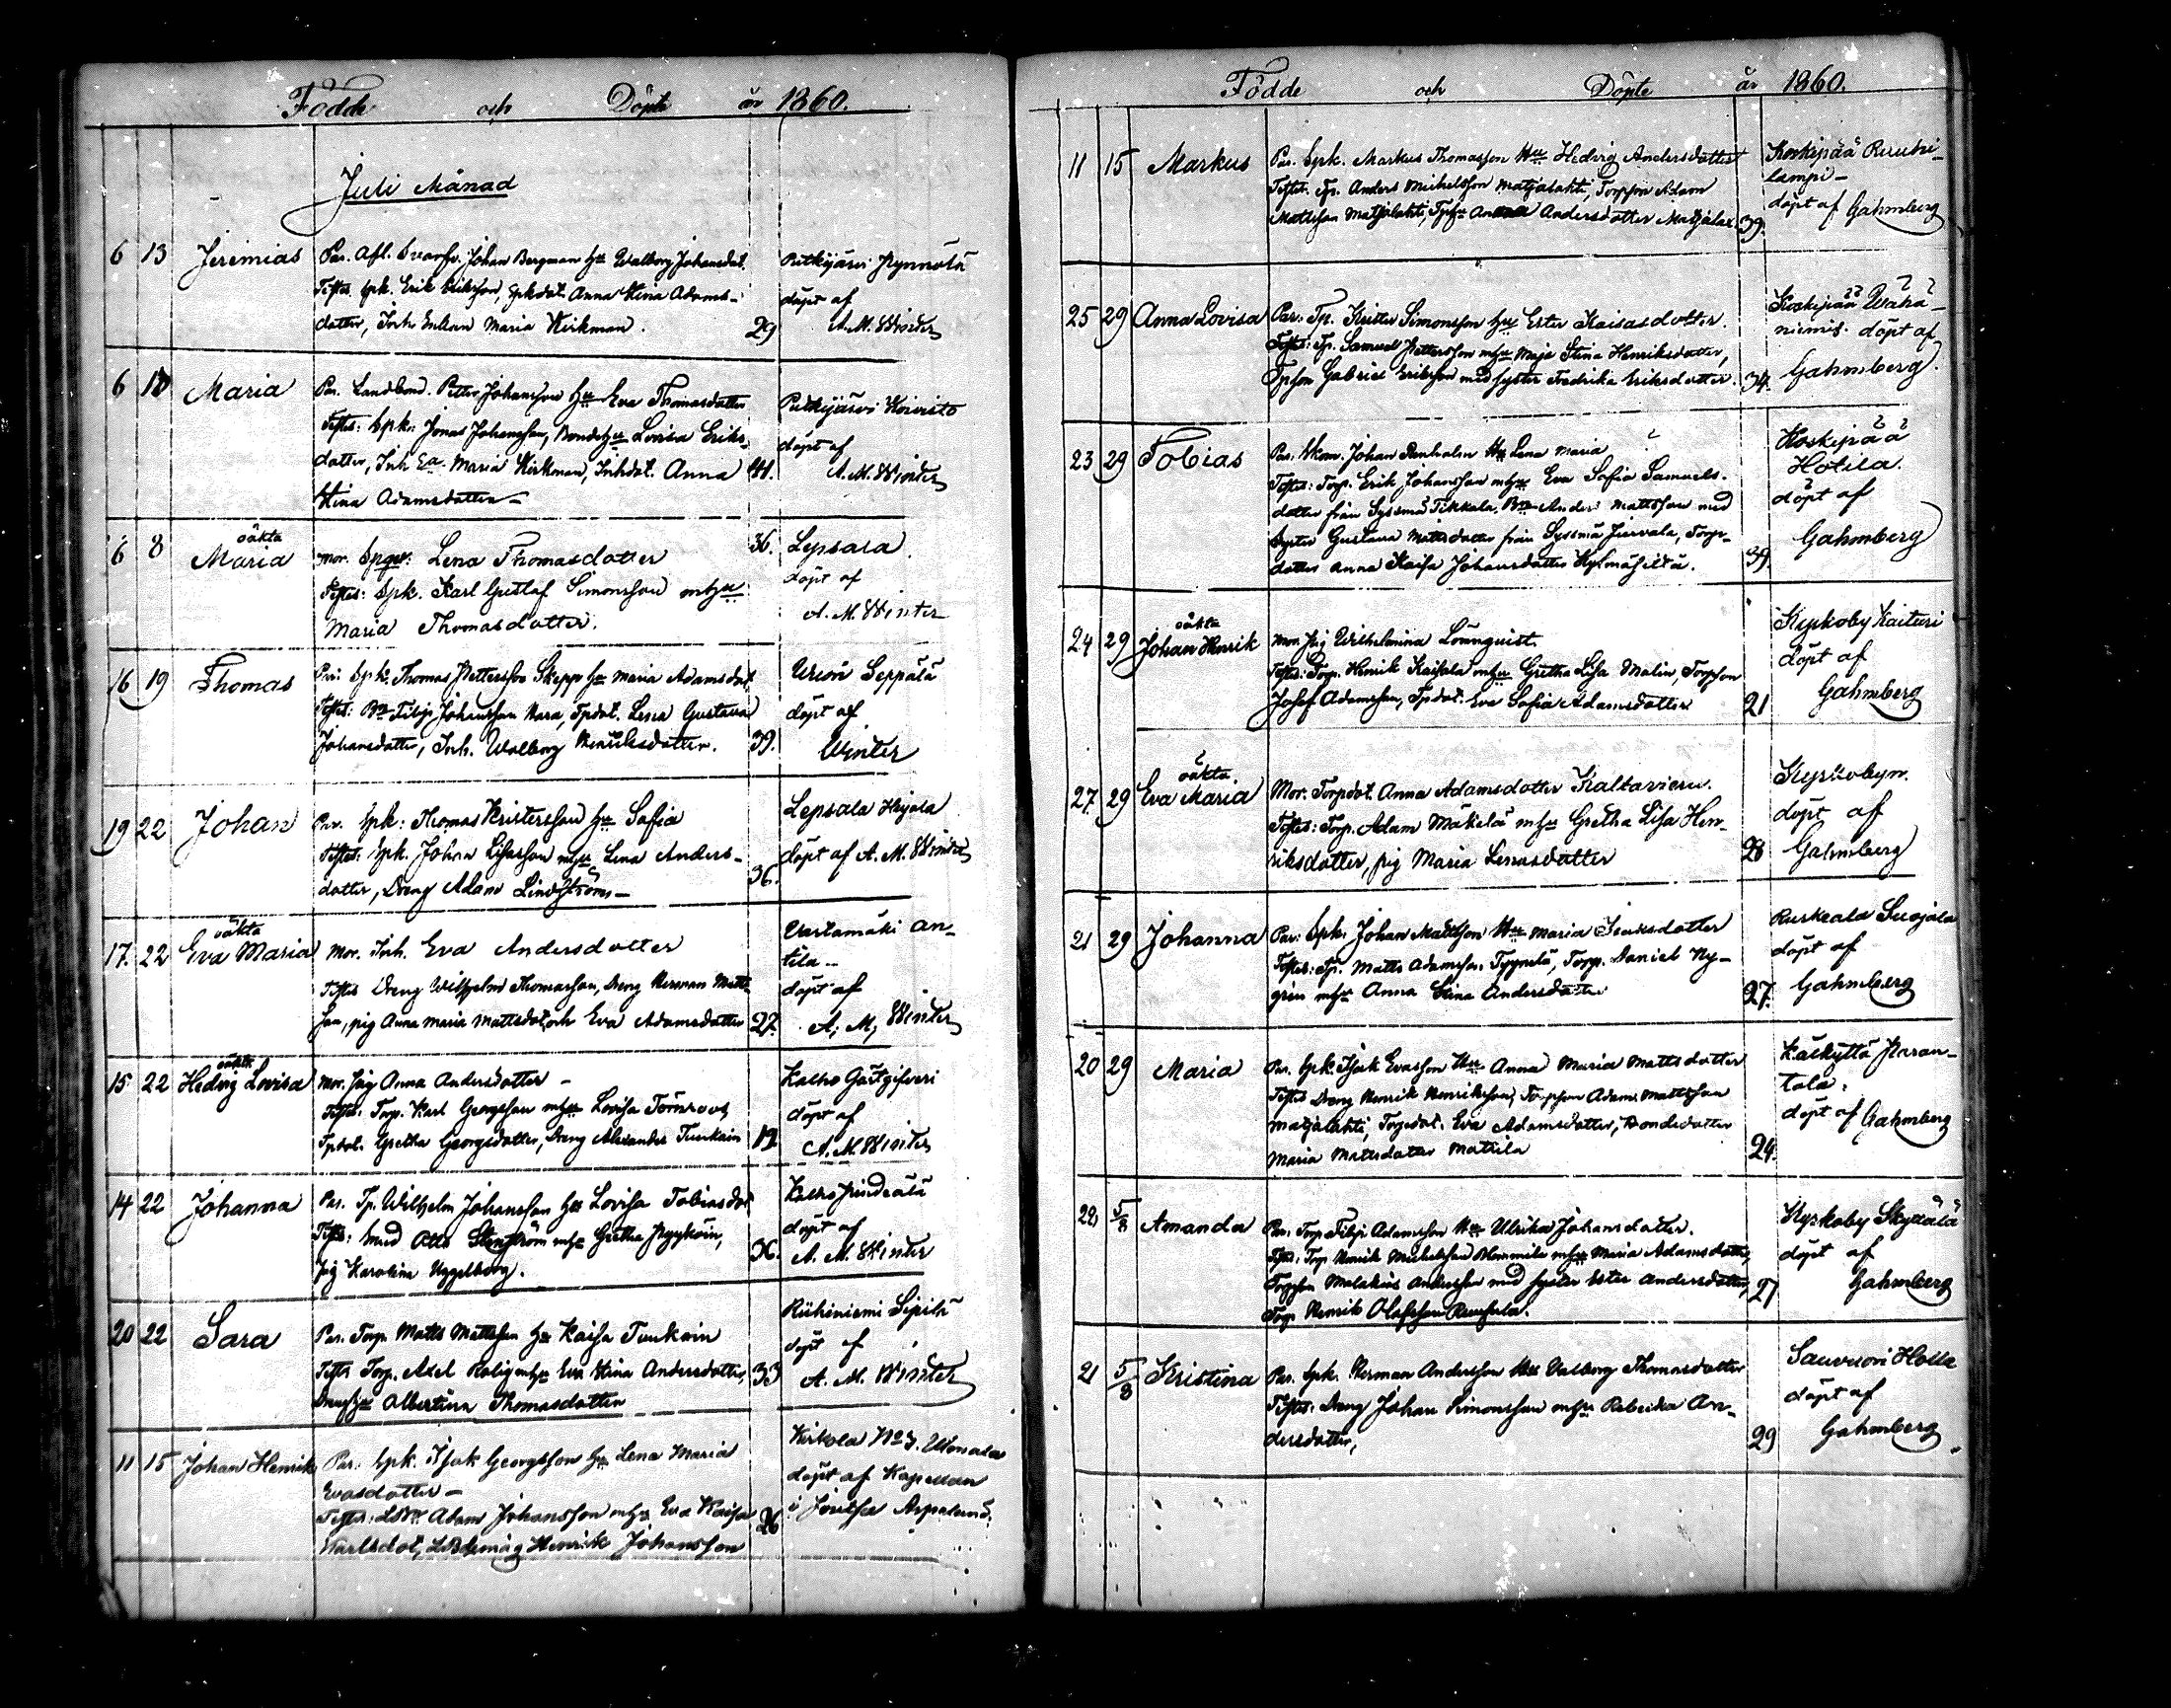 Födde och Döpte år 1860.
Juli Månad
6 13 Jeremias Par. Afl. Svarfv. Johan Bergman Hu Walborg Johansdot.
Testes Spk. Erik Eriksson, Spkdot. Anna Stina Adams-
dotter, Inh. Enkan Maria Kirkman. 29
Putkijärvi
döpt af
A. M. Winter
6 Maria Par. Landbond. Petter Johansson Hu Eva Thomasdotter
Testes: Spk: Jonas Johansson, Bonde Hu Lovisa Eriks-
dotter, Inh. Ea. Maria Kirkman, Inhdot. Anna 41.
Stina Adamsdotter -
Putkijärvi Koivisto
döpt af
A. M. Winter
6 8 oäkta
Maria mor. Lena Thomasdotter 36.
Testes: Spk. Karl Gustaf Simonsson m Hu
Maria Thomasdotter.
Lepsala
döpt af
A. M. Winter
16 19 Thomas Par: Spk. Thomas Pettersson Skepp Hu Maria Adamsdot.
Testes: Bn Filip Johansson, Tpdot. Lena Gustava
Johansdotter, Inh. Walborg Henriksdotter. 39.
Urion Seppälä
döpt af
Winter
19 22 Johan Par. Spk: Thomas Kristersson Hu Sofia
Testes: Spk. Johan m Hu Lena Anders-
dotter, Dreng Adam Lindström - 36.
Lepsala
döpt af A. M. Winter
17. 22 oäkta
Eva Maria mor. Inh. Eva Andersdotter
Testes Dreng Wilhelm Thomasson, Dreng Herman Matts-
son, pig Anna Maria Mattsdot. och Eva Adamsdotter 27.
Vartamäki An-
tila -
döpt af
A. M. Winter
15 22 oäkta
Hedvig Lovisa mor. pig Anna Andersdotter -
Testes: Torp. Karl Georgsson m Hu Lovisa Törnroos
Tpdot. Gretha Georgsdotter, Dreng Alexander Tunkain 19
Kalho Gästgifveri
döpt af
A. M. Winter
14 22 Johanna Par. Tp. Wilhelm Johansson Hu Lovisa Tobiasdot.
Testes: Smed Otto m Hu Gretha
pig Karolina Uggelborg. 36.
Kalho
döpt af
A. M. Winter
20 22 Sara Par. Torp. Matts Mattsson Hu Kaisa Tunkain
Testes Torp. Axel m Hu Eva Stina Andersdotter, 33
Albertina Thomasdotter
Riihiniemi Sipilä
döpt af
A. M. Winter
11 15 Johan Henrik Par: Spk. Isak Georgsson Hu Lena Maria
Evasdotter -
Testes: Adam Johansson m Hu Eva Kaisa 26
Karlsdot, Henrik Johansson
Kirkola No 3.
döpt af Kapellan
i Joutsa Aspelund.
Födde och Döpte år 1860.
11 15 Markus Par. Spk. Markus Thomasson Hu Hedvig Andersdotter
Testes: Tp. Anders Michelsson Matjalahti, Torpson Adam
Mattsson Matjalahti, Andersdotter 39.
Koskipää Ruuhi-
lampi -
döpt af Gahmberg
25 29 Anna Lovisa Par: Tp. Krister Simonsson Hu Ester Kaisasdotter.
Testes: Tp. Samuel Pettersson m Hu Maja Stina Henriksdotter,
Tpson Gabriel Eriksson med syster Fredrika Eriksdotter. 34.
Koskipää Vähä-
niemis. döpt af
Gahmberg.
23 29 Tobias Par. Johan Hu Lena Maria
Testes: Torp. Erik Johansson m Hu Eva Sofia Samuels-
dotter från Sysmä Tikkala, Bn Anders Mattsson med
syster Gustava Mattsdotter från Sysmä, Torp-
dotter Anna Kaisa Johansdotter 39.
Koskipää
Hotila.
döpt af
Gahmberg
24 29 oäkta
Johan Henrik Mor. Pig Wilhelmina Lönnquist.
Testes: Torp. Henrik m Hu Gretha Lisa Malin, Torpson
Josef Adamsson, Tpdot. Eva Sofia Adamsdotter 21
Kyrkoby Kaituri
döpt af
Gahmberg
27. 29 oäkta.
Eva Maria Mor. Torpdot. Anna Adamsdotter Kaltavieru.
Testes: Torp. Adam Mäkelä m Hu Gretha Lisa Hen-
riksdotter, pig Maria Lenasdotter 28
Kyrkobyn.
döpt af
Gahmberg
21 29 Johanna Par: Spk: Johan Mattsson Hu Maria
Testes: Tp. Matts Adamsson, Torp. Daniel Ny-
gren m Hu Anna Stina Andersdotter 27.
Ruskeala Suojala
döpt af
Gahmberg
20 29 Maria Par. Spk. Isak Evasson Hu Anna Maria Mattsdotter
Testes Dreng Henrik Henriksson, Torpson Adam Mattsson
Matjalahti, Torpdot. Eva Adamsdotter, Bondedotter
Maria Mattsdotter Mattila 24.
Käskyttä Paran-
tala.
döpt af Gahmberg
22 5/8 Amanda Par. Torp Filip Adamsson Hu Ulrika Johansdotter.
Testes: Torp. Henrik Michelsson m Hu Maria Adamsdotter,
Torpson Malakias Andersson med syster Ester Andersdotter, 27
Torp. Henrik Olofsson
Kyrkoby Skyttälä
döpt af
Gahmberg
21 5/8 Kristina Par. Spk. Herman Andersson Hu Valborg Thomasdotter
Testes: Dreng Johan Simonsson m Hu Rebecka An-
dersdotter, 29
Sauvuori Holle
döpt af
Gahmberg